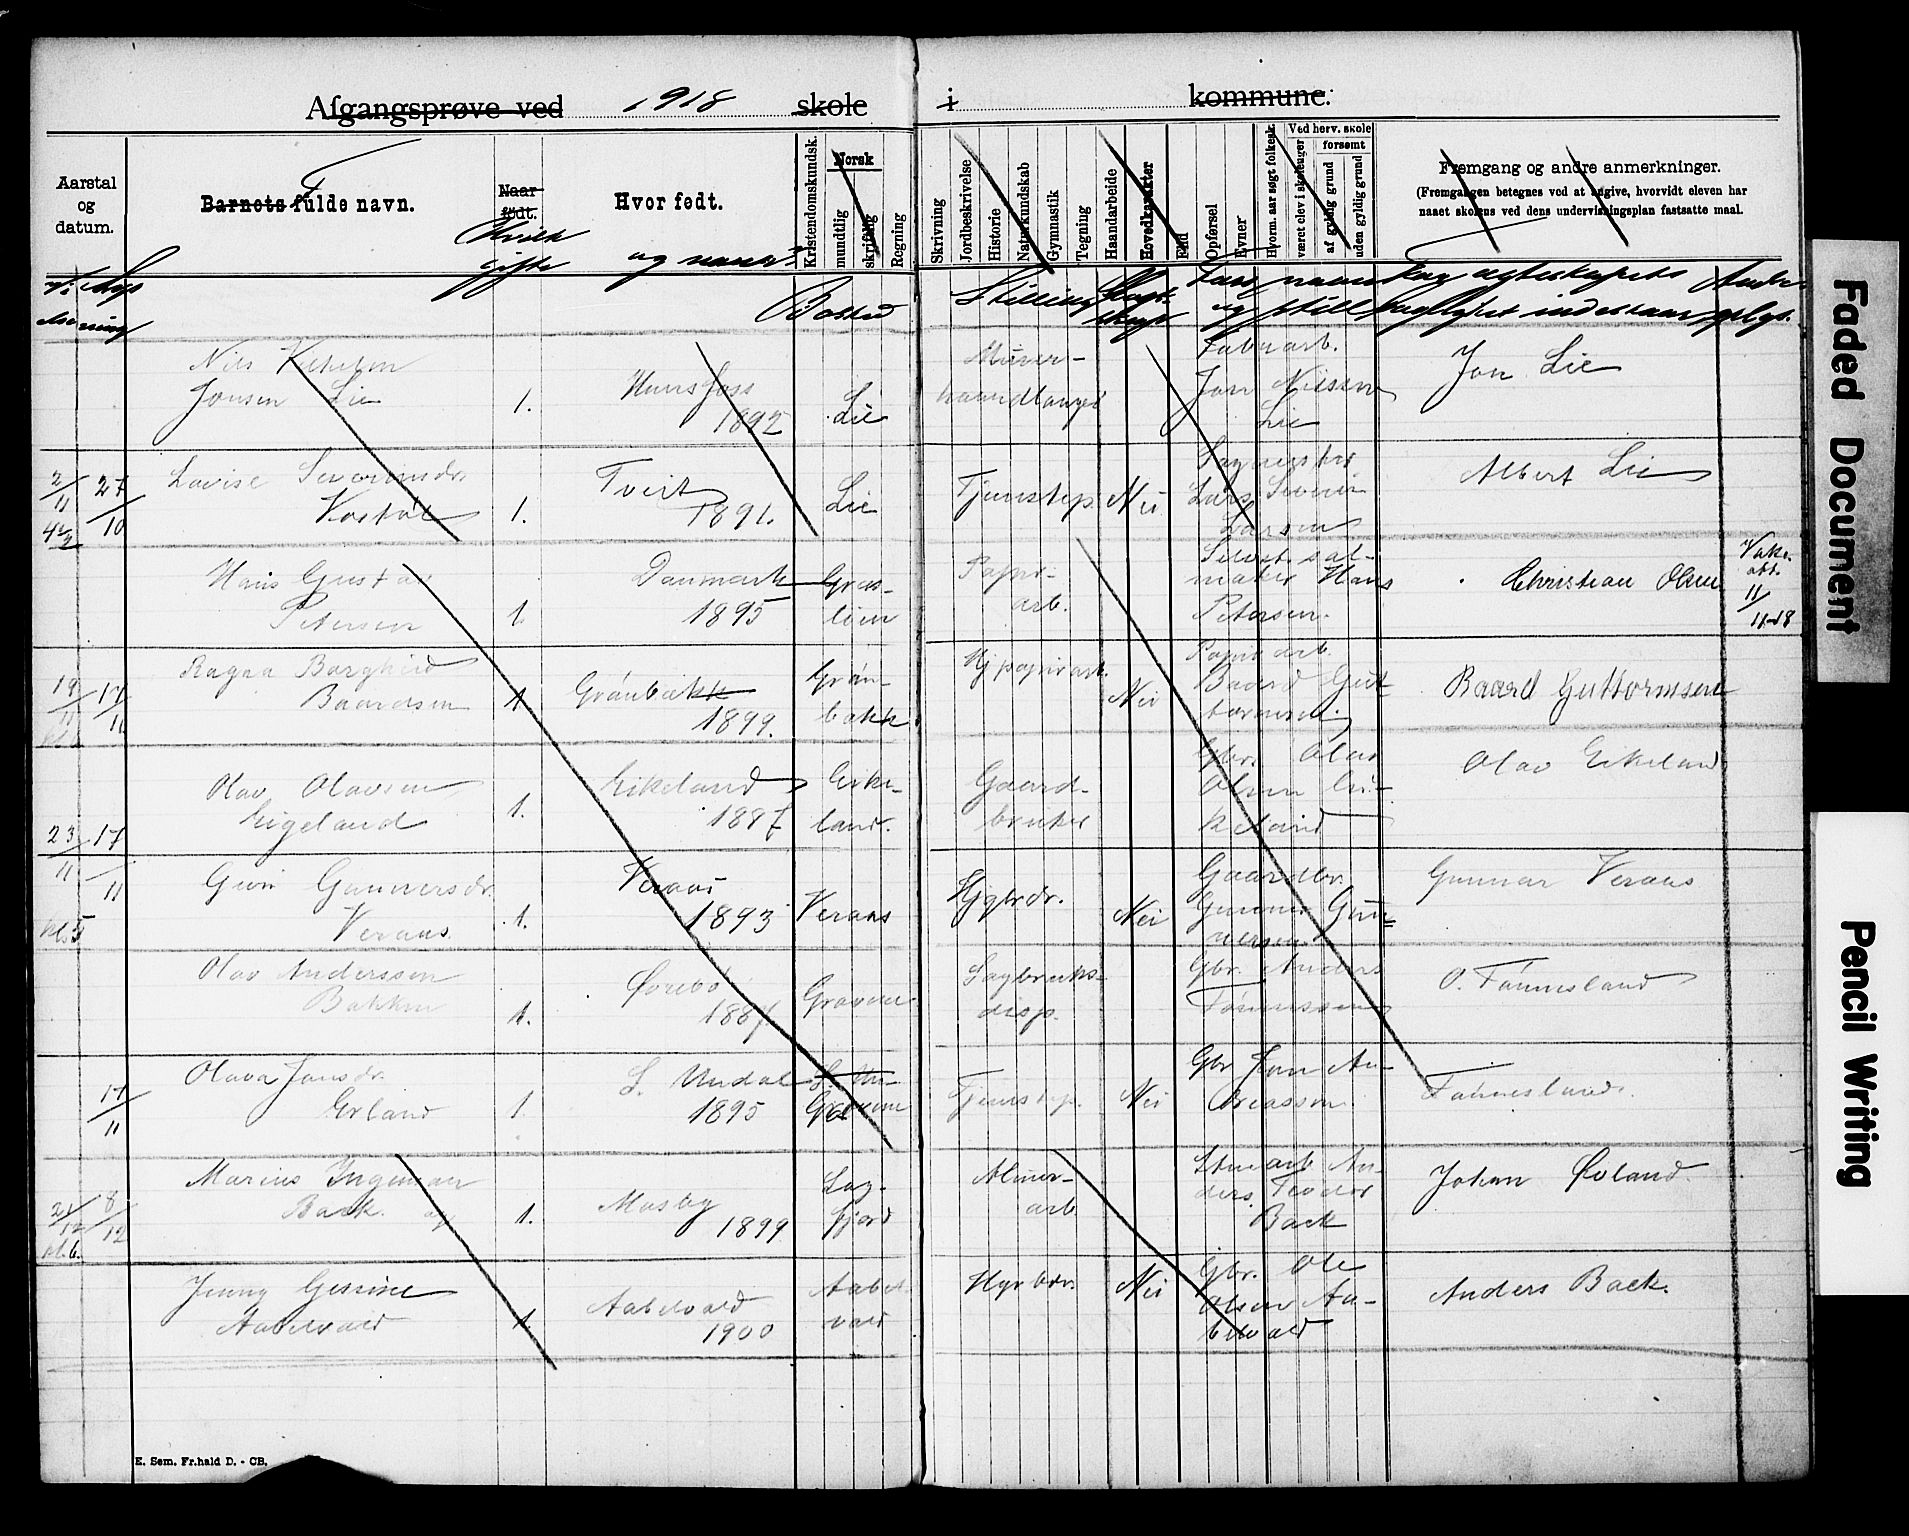 Afgangsprøve ved 1918 skole i kommune:
Aarstal og datum.
Barnets fulde navn.
Naar født.
Hvor født.
Kristendomskundsk.
Norsk
mundtlig
skriftlig
Regning
Skrivning
Jordbeskrivelse
Historie
Naturkundskab
Gymnastik
Tegning
Haandarbeide
Hovedkarakter
Flid
Opførsel
Evner
Hvorm. aar søgt folkesk.
Ved herv. skole
været elev i skoleuger
forsømt
af gyldig grund
uden gyldig grund
Fremgang og andre anmerkninger.
(Fremgangen betegnes ved at angive, hvorvidt eleven har
naaet skolens ved dens undervisningsplan fastsatte maal.
gifte
og naar?
Bosted
Stilling
og still
Nils
Jonsen Lie
1.
Hunsfoss
1892
Lie
Murer-
haandlanger
Fabr.arb.
Jon Nilssen
Lie
Jon Lie
2/11
27/10
Lovise Severinsdr.
1.
Tveit
1891.
Lie
Tjenstep.
Nei
Lars Severin
Larsen
Albert Lie
Hans Gustav
Petersen
1.
Danmark
1895
Gros-
lien
Papir-
arb.
maker Hans
Petersen.
Christian Olsen
11/11-18
19/11
17/11
Ragna Borghild
Baardsen
1
Grånbakk
1899.
Grån-
bakk
Hj papirarb.
Nei
Papir arb.
Baard Gut-
tormsen.
Baard Guttormsen
Olav Olavsen
Eigeland
1.
Eikeland
1887
Eike-
land.
Gaard-
bruker
Gbr. Olav
Olsen Ei-
keland
Olav Eikeland
23/11
17/11
kl. 5
Guri Gunnersdr.
Veraas
1.
Veraas
1893
Veraas
Hjgbrdr.
Nei
Gaardbr.
Gunner Gun-
nersen
Gunnar Veraas
Olav Anderssen
Bakken
1.
Øvrebø
1887.
Gravene
Sagbruks-
disp.
Gbr. Anders
Tønnessen
O. Tønnesland
17/11
Olava Jonsdr.
Erland
1.
S. Undal
1895
Gravene
Tjenstep.
Nei
Gbr Jon An-
dreassen
Tønnesland.
21/12
8/12
kl. 6.
Marius Ingeman
Back. og
1.
Mosby
1899
Log-
fjord
arb
Stuearb An-
ders Teodor
Back
Johan Øvland.
Jenny Gesine
Aabelvold
1.
Aabelvold
1900
Aabel-
vold
Nei
Gbr. Ole
Olsen Aa-
belvold
Anders Back.
E. Sem. Fr.hald D. - CB.
Faded Document
Pencil Writing